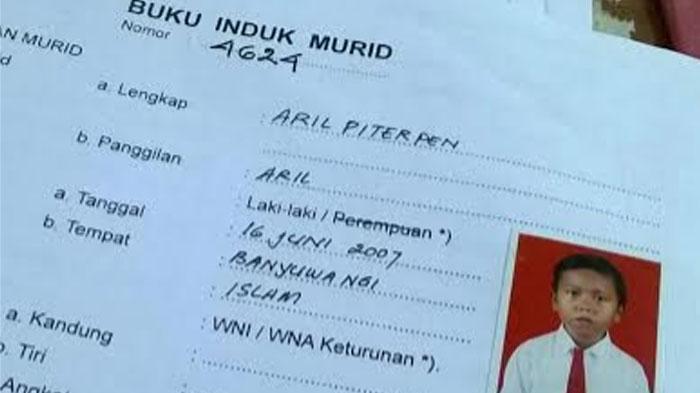 BUKU INDUK MURID
Nomor 4624
AN MURID
d
a. Lengkap : ARIL PITERPEN
b. Panggilan : ARIL
Laki-laki / Perempuan *)
a. Tanggal : 16 JUNI 2007
b. Tempat : BANYUWANGI
: ISLAM
: WNI / WNA Keturunan *).
a. Kandung :
b. Tiri
Angka